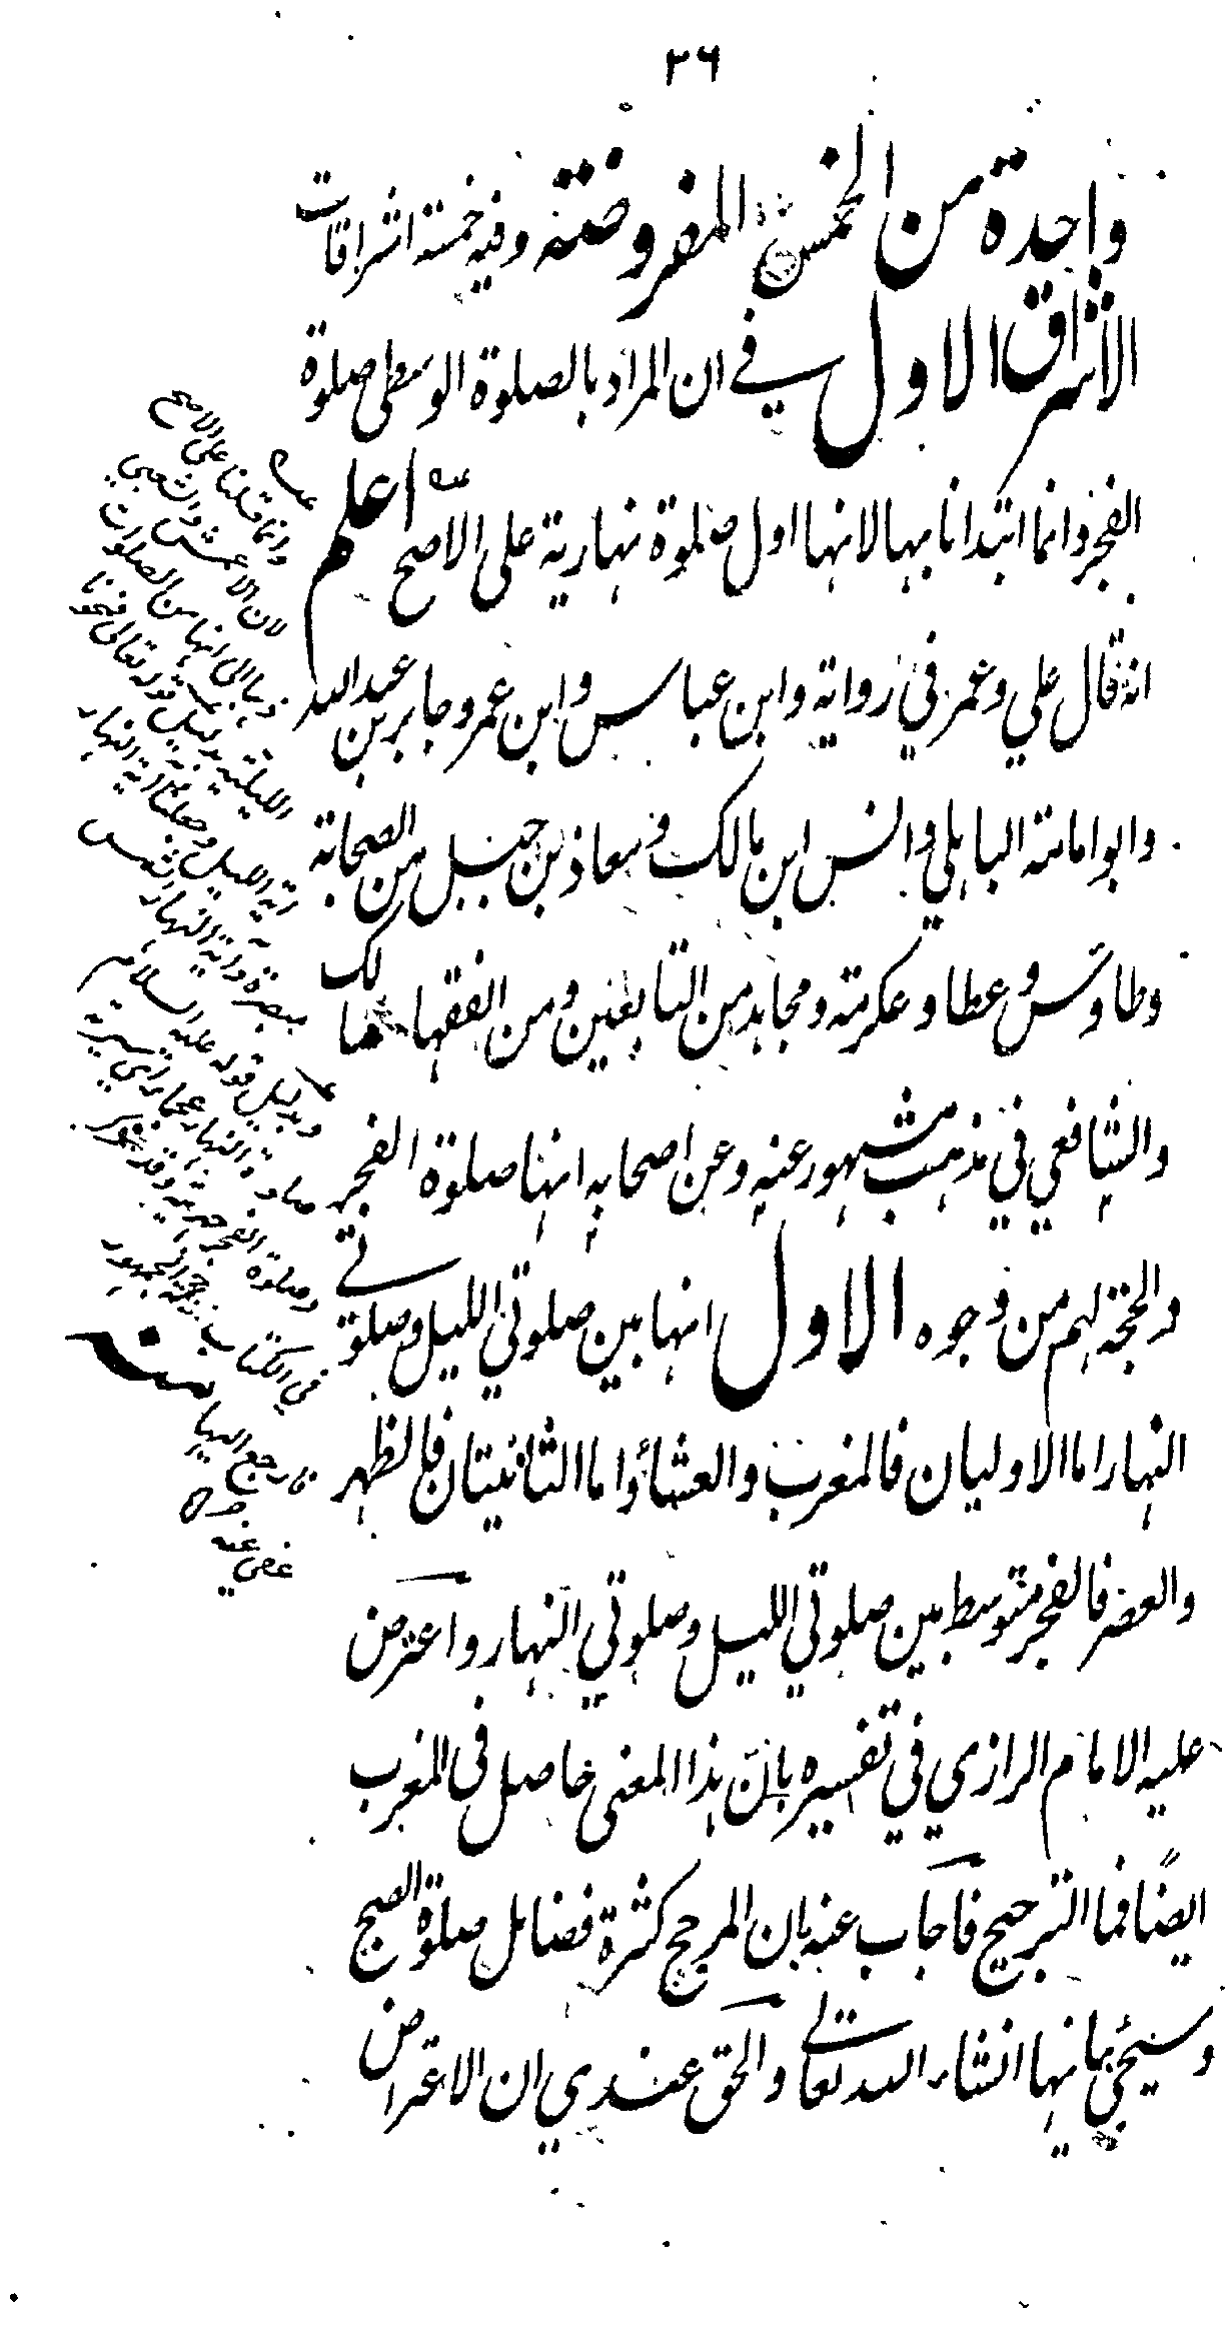 ٢٦
واحدة من الخمس المفروضته وفيه خمسة اشراقات
الاشراق الاول في ان المراد بالصلوة الوسطى صلوة
الفجر وانما ابتدانا بها لانها اول صلوة نهارية على الاصح عسه اعلم
انه قال علي وعمر في رواية وابن عباس وابن عمر وجابر بن عبد الله
وابو امامته الباهلي وانس ابن مالك ومعاذ بن جبل من الصحابة
وطاؤس وعطا وعكرمته ومجاهد من التابعين ومن الفقها مالك
والشافعي في مذهب مشهور عنه وعن اصحابه انها صلوة الفجر
والحجة لهم من وجوه الاول انها بين صلوتي الليل وصلوتي
النهار اما الاوليان فالمغرب والعشاء واما الثانيتان فالظهر
والعصر فالفجر متوسط بين صلوتي الليل وصلوتي النهار واعترض
عليه الامام الرازي في تفسيره بان هذا المعنى حاصل فى المغرب
ايضًا فما الترجيح فاجاب عنه بان المرجح كثرة فضائل صلوة الصبح
وسيجئ بيانها انشاء الله تعالى والحق عندي ان الاعتراض
عسه
وانما قلنا على الاصح
لان الاعمش والشعبي
ذهبا الى انها من الصلوات
الليلية بدليل قوله تعالى فمحونا
اية الليل وجعلنا اية النهار
مبصرة واية النهار الشمس
وبدليل قوله عليه السلام
صلوة النهار عجماء اي سرية
وصلوة الفجر جهرية وقد
في الكتاب حجة الجمهور
فارجع اليها منه
عفي عنه